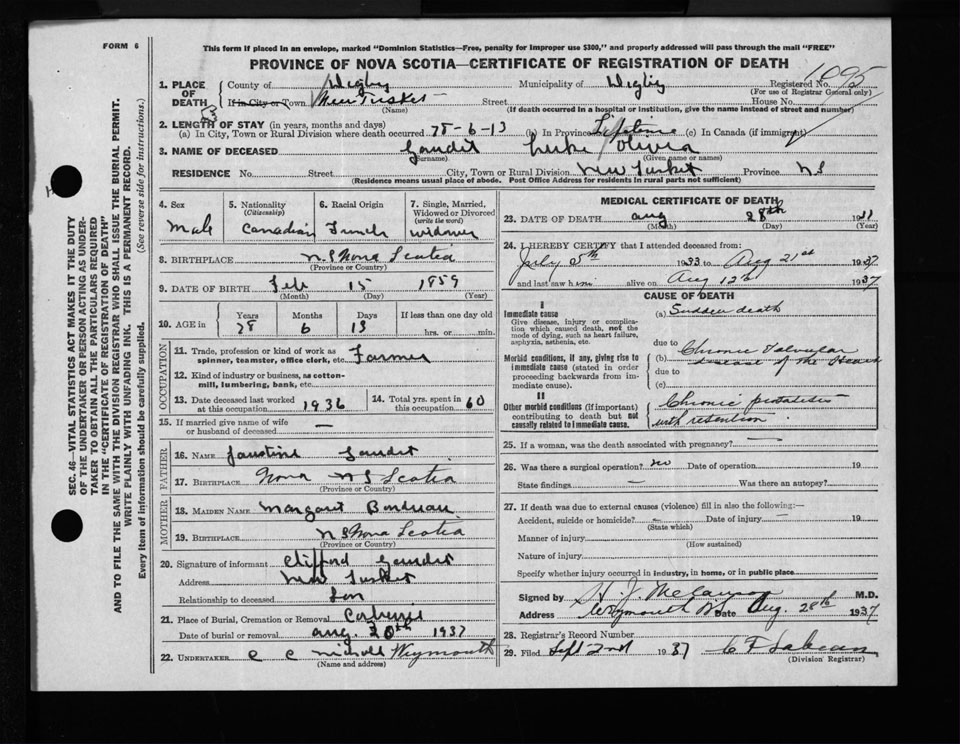 FORM 6
This form if placed in an envelope, marked "Dominion Statistics—Free, penalty for improper use $300," and properly addressed will pass through the mail "FREE"
PROVINCE OF NOVA SCOTIA—CERTIFICATE OF REGISTRATION OF DEATH
1. PLACE OF DEATH County of Digby Municipality of Digby Registered No. 1095
(For use of Registrar General only)
If in City or Town New Tusket Street House No.
(Name) (If death occurred in a hospital or institution, give the name instead of street and number)
2. LENGTH OF STAY (in years, months and days)
(a) In City, Town or Rural Division where death occurred 78-6-13 (b) In Province Lifetime (c) In Canada (if immigrant)
3. NAME OF DECEASED Gaudet Olivia
(Surname) (Given name or names)
RESIDENCE No. Street City, Town or Rural Division New Tusket Province NS
(Residence means usual place of abode. Post Office Address for residents in rural parts not sufficient)
4. Sex 5. Nationality (Citizenship) 6. Racial Origin 7. Single, Married, Widowed or Divorced (write the word)
Male Canadian French widower
8. BIRTHPLACE N.S Nova Scotia
(Province or Country)
9. DATE OF BIRTH Feb 15 1859
(Month) (Day) (Year)
10. AGE in Years Months Days If less than one day old
78 6 13 hrs. or min.
OCCUPATION
11. Trade, profession or kind of work as spinner, teamster, office clerk, etc. Farmer
12. Kind of industry or business, as cotton-mill, lumbering, bank, etc.
13. Date deceased last worked at this occupation 1936 14. Total yrs. spent in this occupation 60
15. If married give name of wife or husband of deceased —
FATHER
16. NAME Gaudet
17. BIRTHPLACE Nova NS Scotia
(Province or Country)
MOTHER
18. MAIDEN NAME Margaret
19. BIRTHPLACE N.S Nova Scotia
(Province or Country)
20. Signature of informant Clifford Gaudet
Address New Tusket
Relationship to deceased Son
21. Place of Burial, Cremation or Removal
Date of burial or removal Aug. 30th 1937
22. UNDERTAKER C C Nichols Weymouth
(Name and address)
MEDICAL CERTIFICATE OF DEATH
23. DATE OF DEATH Aug 28th
(Month) (Day) (Year)
24. I HEREBY CERTIFY that I attended deceased from:
July 5th 1933 to Aug 21st 1937
and last saw him alive on Aug 12th 1937
CAUSE OF DEATH
I
Immediate cause
Give disease, injury or complication which caused death, not the mode of dying, such as heart failure, asphyxia, asthenia, etc.
(a) Sudden death
due to
Morbid conditions, if any, giving rise to immediate cause (stated in order proceeding backwards from immediate cause).
(b) Chronic Valvular disease of the Heart
due to
(c)
II
Other morbid conditions (if important) contributing to death but not causally related to immediate cause.
Chronic prostatitis with retention
25. If a woman, was the death associated with pregnancy? —
26. Was there a surgical operation? no Date of operation 19
State findings — Was there an autopsy?
27. If death was due to external causes (violence) fill in also the following:—
Accident, suicide or homicide? — Date of injury — 19
(State which)
Manner of injury
(How sustained)
Nature of injury
Specify whether injury occurred in industry, in home, or in public place
Signed by M.D.
Address Weymouth NS Date Aug. 28th 1937
28. Registrar's Record Number
29. Filed Sept 2nd 1937
(Division Registrar)
SEC. 46—VITAL STATISTICS ACT MAKES IT THE DUTY
OF THE UNDERTAKER OR PERSON ACTING AS UNDER-
TAKER TO OBTAIN ALL THE PARTICULARS REQUIRED
IN THE "CERTIFICATE OF REGISTRATION OF DEATH"
AND TO FILE THE SAME WITH THE DIVISION REGISTRAR WHO SHALL ISSUE THE BURIAL PERMIT.
WRITE PLAINLY WITH UNFADING INK. THIS IS A PERMANENT RECORD.
Every item of information should be carefully supplied. (See reverse side for instructions.)